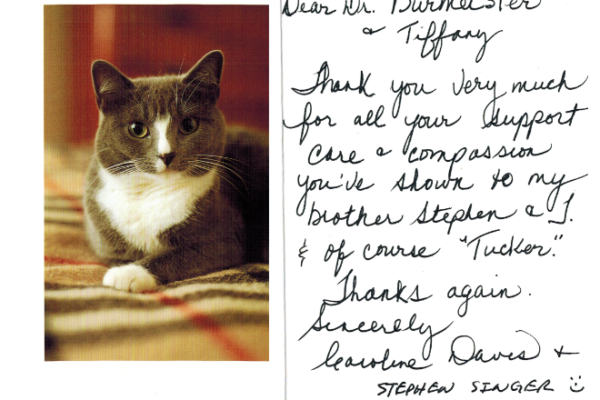 Dear Dr. Burmeister
& Tiffany
Thank you very much
for all your support
care & compassion
you've shown to my
brother Stephen & I.
& of course "Tucker."
Thanks again.
Sincerely
Caroline Davis +
STEPHEN SINGER :)